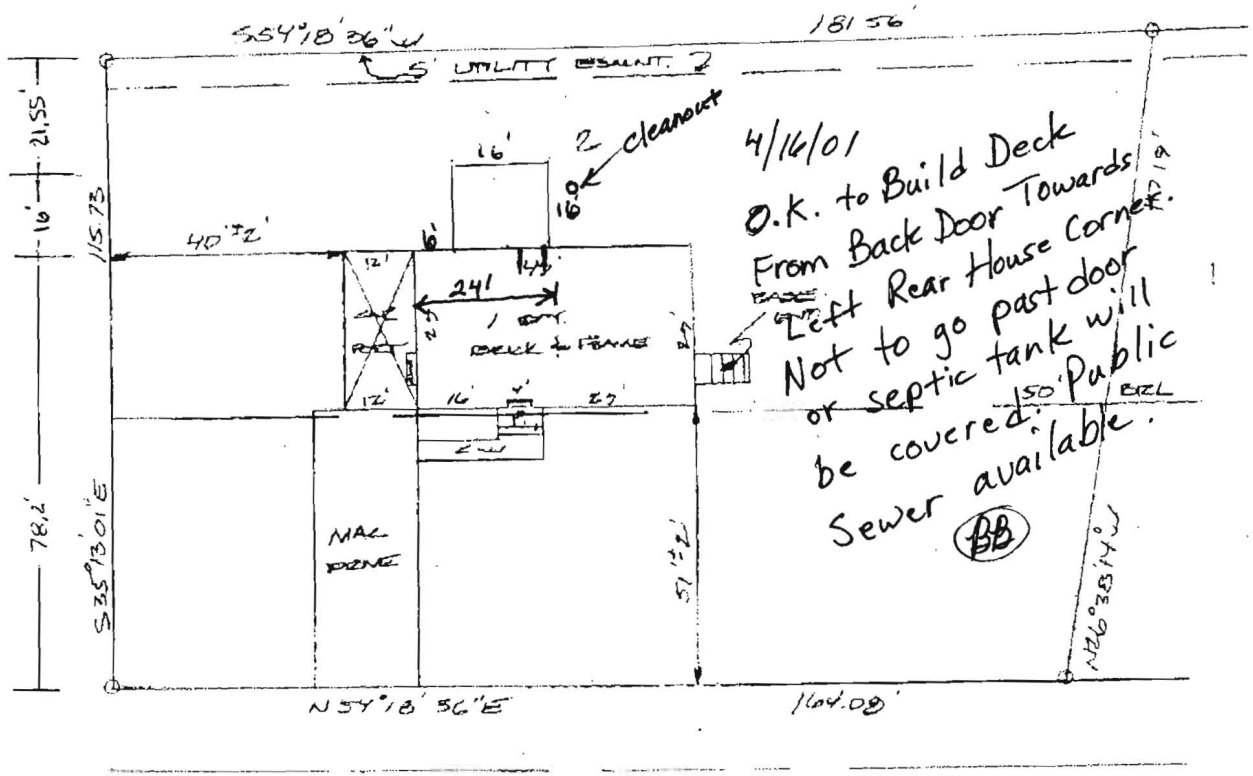 S54°18'36"W
181.56'
5' UTILITY ESMNT.
21.55'
16'
78.2'
115.73
S35°13'01"E
16'
2
cleanout
16'
40'±2'
6'
12'
4'
24'
25'
BRICK & FRAME
27
12'
16'
4'
27'
MAC
DRIVE
51'±2'
50' BRL
N26°38'14"W
N54°18'36"E
164.08'
4/16/01
O.K. to Build Deck
From Back Door Towards
Left Rear House Corner.
Not to go past door
or septic tank will
be covered. Public
Sewer available.
BB